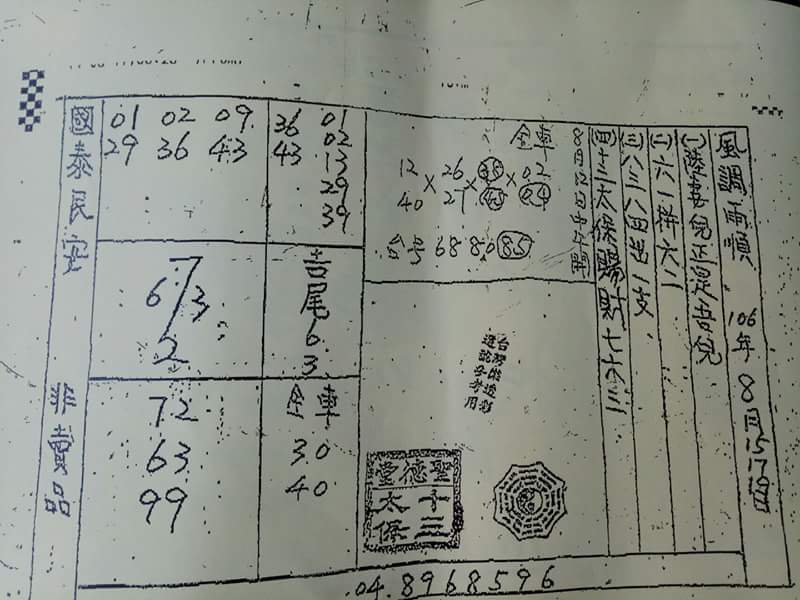 風調雨順 106年8月15 17 19日
(一)陸靑兌正是吉兌
(二)六一拼六二
(三)八三八四送一支
(四)十三太保賜對七七六三
全車
12 × 26 × 35 × 02
40 27 45 04
台号 68 86 85
台灣能透彩
迷號參考用
聖德堂
十三
太保
36 01
43 02
13
29
39
吉尾63
全車
30
40
01 02 09
29 36 43
7
6 3
2
72
63
99
國泰民安 非賣品
04.8968596